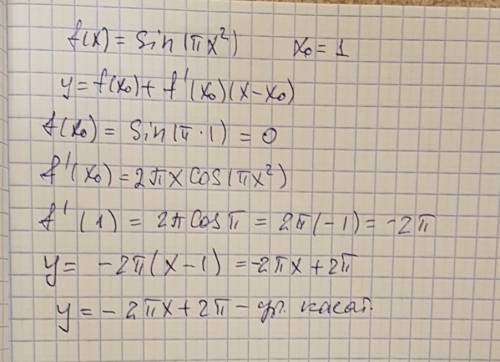 f(x) = sin(πx²) x₀ = 1
y = f(x₀) + f'(x₀)(x-x₀)
f(x₀) = sin(π·1) = 0
f'(x₀) = 2πx cos(πx²)
f'(1) = 2π cos π = 2π(-1) = -2π
y = -2π(x-1) = -2πx + 2π
y = -2πx + 2π - ур. касат.